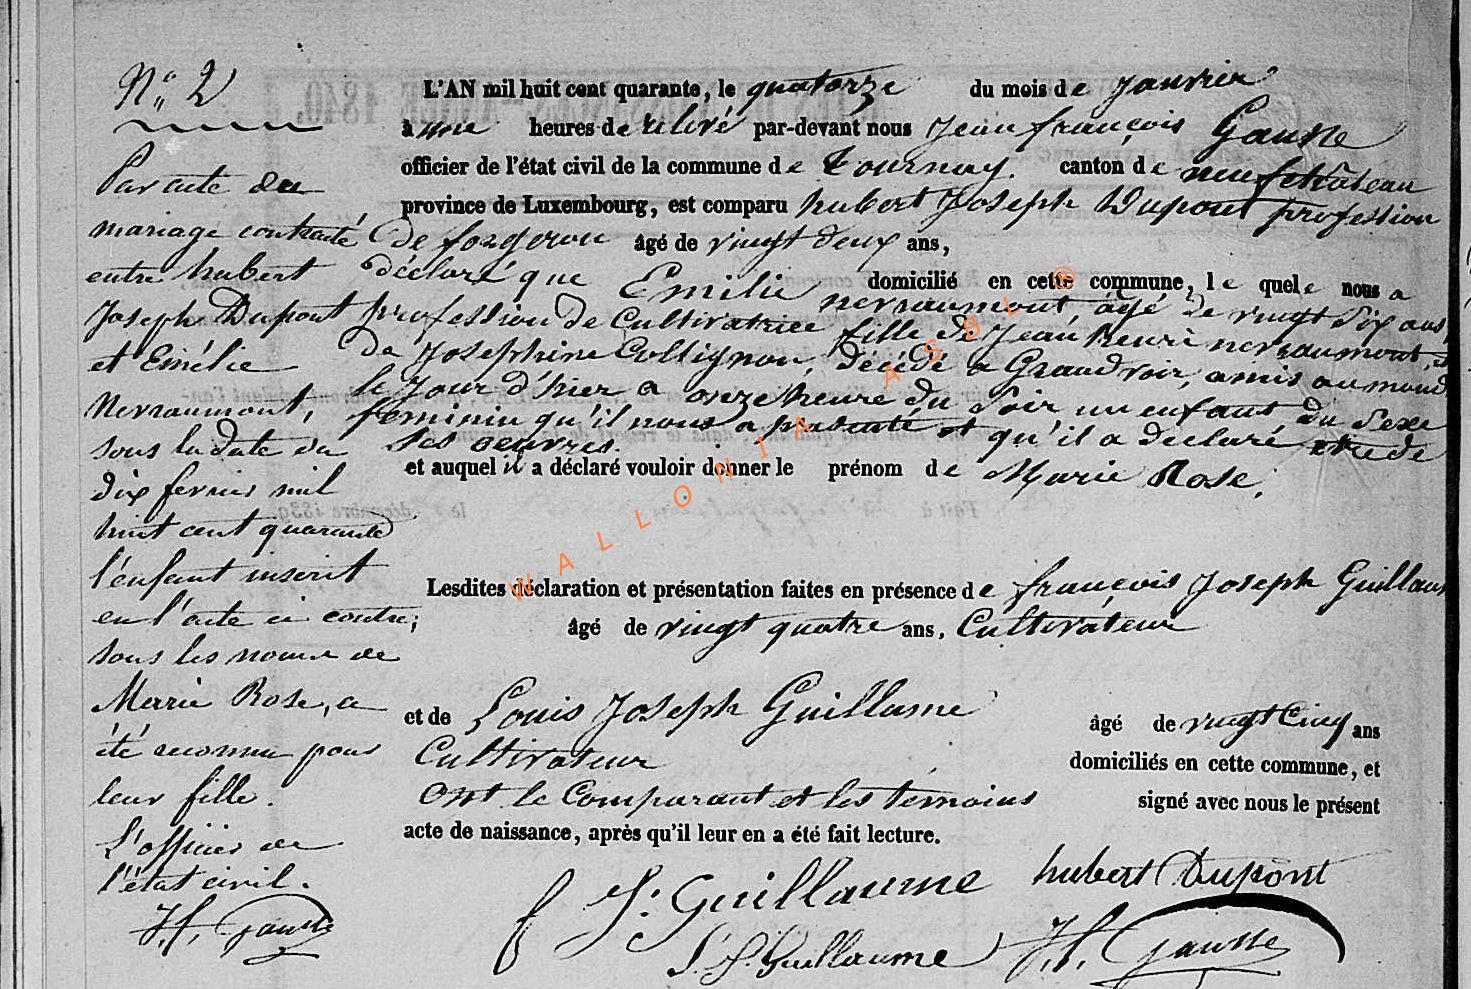 N° 2
Par acte de
mariage contracté
entre hubert
Joseph Dupont
et Emélie
Nerraumont,
sous la date du
dix fevrier mil
huit cent quarante
l'enfant inscrit
en l'acte ci contre,
sous les noms de
Marie Rose, a
été reconnu pour
leur fille.
L'officier de
l'état civil.
J.f. Gausse
L'AN mil huit cent quarante, le quatorze du mois de janvier
à une heures de relevé par-devant nous Jean françois Gausse
officier de l'état civil de la commune de Tournay. canton de neufchâteau
province de Luxembourg, est comparu hubert Joseph Dupont profession
de forgeron âgé de vingt deux ans,
domicilié en cette commune, le quel e nous a
déclaré que Emilie nerraumont, âgé de vingt six ans,
profession de Cultivatrice fille de Jean henri nerraumont, et
de Josephine Collignon, décédé a Grandvoir, a mis au monde
le jour d'hier a onze heure du soir un enfant du sexe
feminin qu'il nous a presenté et qu'il a declaré etre de
ses oeuvres.
et auquel il a déclaré vouloir donner le prénom de Marie Rose.
Lesdites déclaration et présentation faites en présence de françois Joseph Guillaume
âgé de vingt quatre ans, Cultivateur
et de Louis Joseph Guillame âgé de vingt Cinq ans
Cultivateur domiciliés en cette commune, et
ont le Comparant et les temoins signé avec nous le présent
acte de naissance, après qu'il leur en a été fait lecture.
f J. Guillaume hubert Dupont
L. J. Guillaume J.f. Gausse
WALLONIA ASBL ©